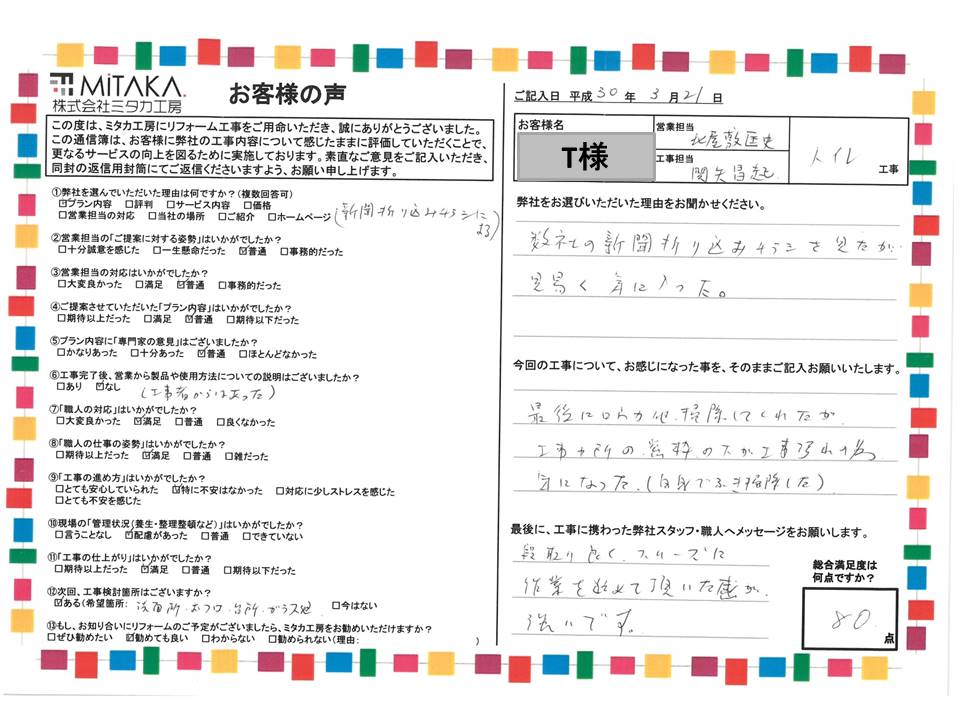 MiTAKA.
株式会社ミタカ工房
お客様の声
この度は、ミタカ工房にリフォーム工事をご用命いただき、誠にありがとうございました。
この通信簿は、お客様に弊社の工事内容について感じたままに評価していただくことで、
更なるサービスの向上を図るために実施しております。素直なご意見をご記入いただき、
同封の返信用封筒にてご返信くださいますよう、お願い申し上げます。
①弊社を選んでいただいた理由は何ですか？(複数回答可)
☑プラン内容 □評判 □サービス内容 □価格
□営業担当の対応 □当社の場所 □ご紹介 □ホームページ (新聞折り込みチラシによる)
②営業担当の「ご提案に対する姿勢」はいかがでしたか？
□十分誠意を感じた □一生懸命だった ☑普通 □事務的だった
③営業担当の対応はいかがでしたか？
□大変良かった □満足 ☑普通 □事務的だった
④ご提案させていただいた「プラン内容」はいかがでしたか？
□期待以上だった □満足 ☑普通 □期待以下だった
⑤プラン内容に「専門家の意見」はございましたか？
□かなりあった □十分あった ☑普通 □ほとんどなかった
⑥工事完了後、営業から製品や使用方法についての説明はございましたか？
□あり ☑なし (工事者からはあった)
⑦「職人の対応」はいかがでしたか？
□大変良かった ☑満足 □普通 □良くなかった
⑧「職人の仕事の姿勢」はいかがでしたか？
□期待以上だった ☑満足 □普通 □雑だった
⑨「工事の進め方」はいかがでしたか？
□とても安心していられた ☑特に不安はなかった □対応に少しストレスを感じた
□とても不安を感じた
⑩現場の「管理状況(養生・整理整頓など)」はいかがでしたか？
□言うことなし ☑配慮があった □普通 □できていない
⑪「工事の仕上がり」はいかがでしたか？
□期待以上だった ☑満足 □普通 □期待以下だった
⑫次回、工事検討箇所はございますか？
☑ある(希望箇所: 洗面所・おフロ・台所・ガラス 他 □今はない
⑬もし、お知り合いにリフォームのご予定がございましたら、ミタカ工房をお勧めいただけますか？
□ぜひ勧めたい ☑勧めても良い □わからない □勧められない(理由: )
ご記入日 平成 30 年 3 月 21 日
お客様名
T様
営業担当
北屋敷匡史
工事担当
関矢昌起
トイレ
工事
弊社をお選びいただいた理由をお聞かせください。
数社の新聞折り込みチラシを見たが
見易く気に入った。
今回の工事について、お感じになった事を、そのままご記入お願いいたします。
最後に 掃除してくれたが
工事ヶ所の窓枠の 工事
気になった。(自身でふき掃除した)
最後に、工事に携わった弊社スタッフ・職人へメッセージをお願いします。
段取り良く、スムーズに
作業を始めて頂いた感が
強いです。
総合満足度は
何点ですか？
80
点